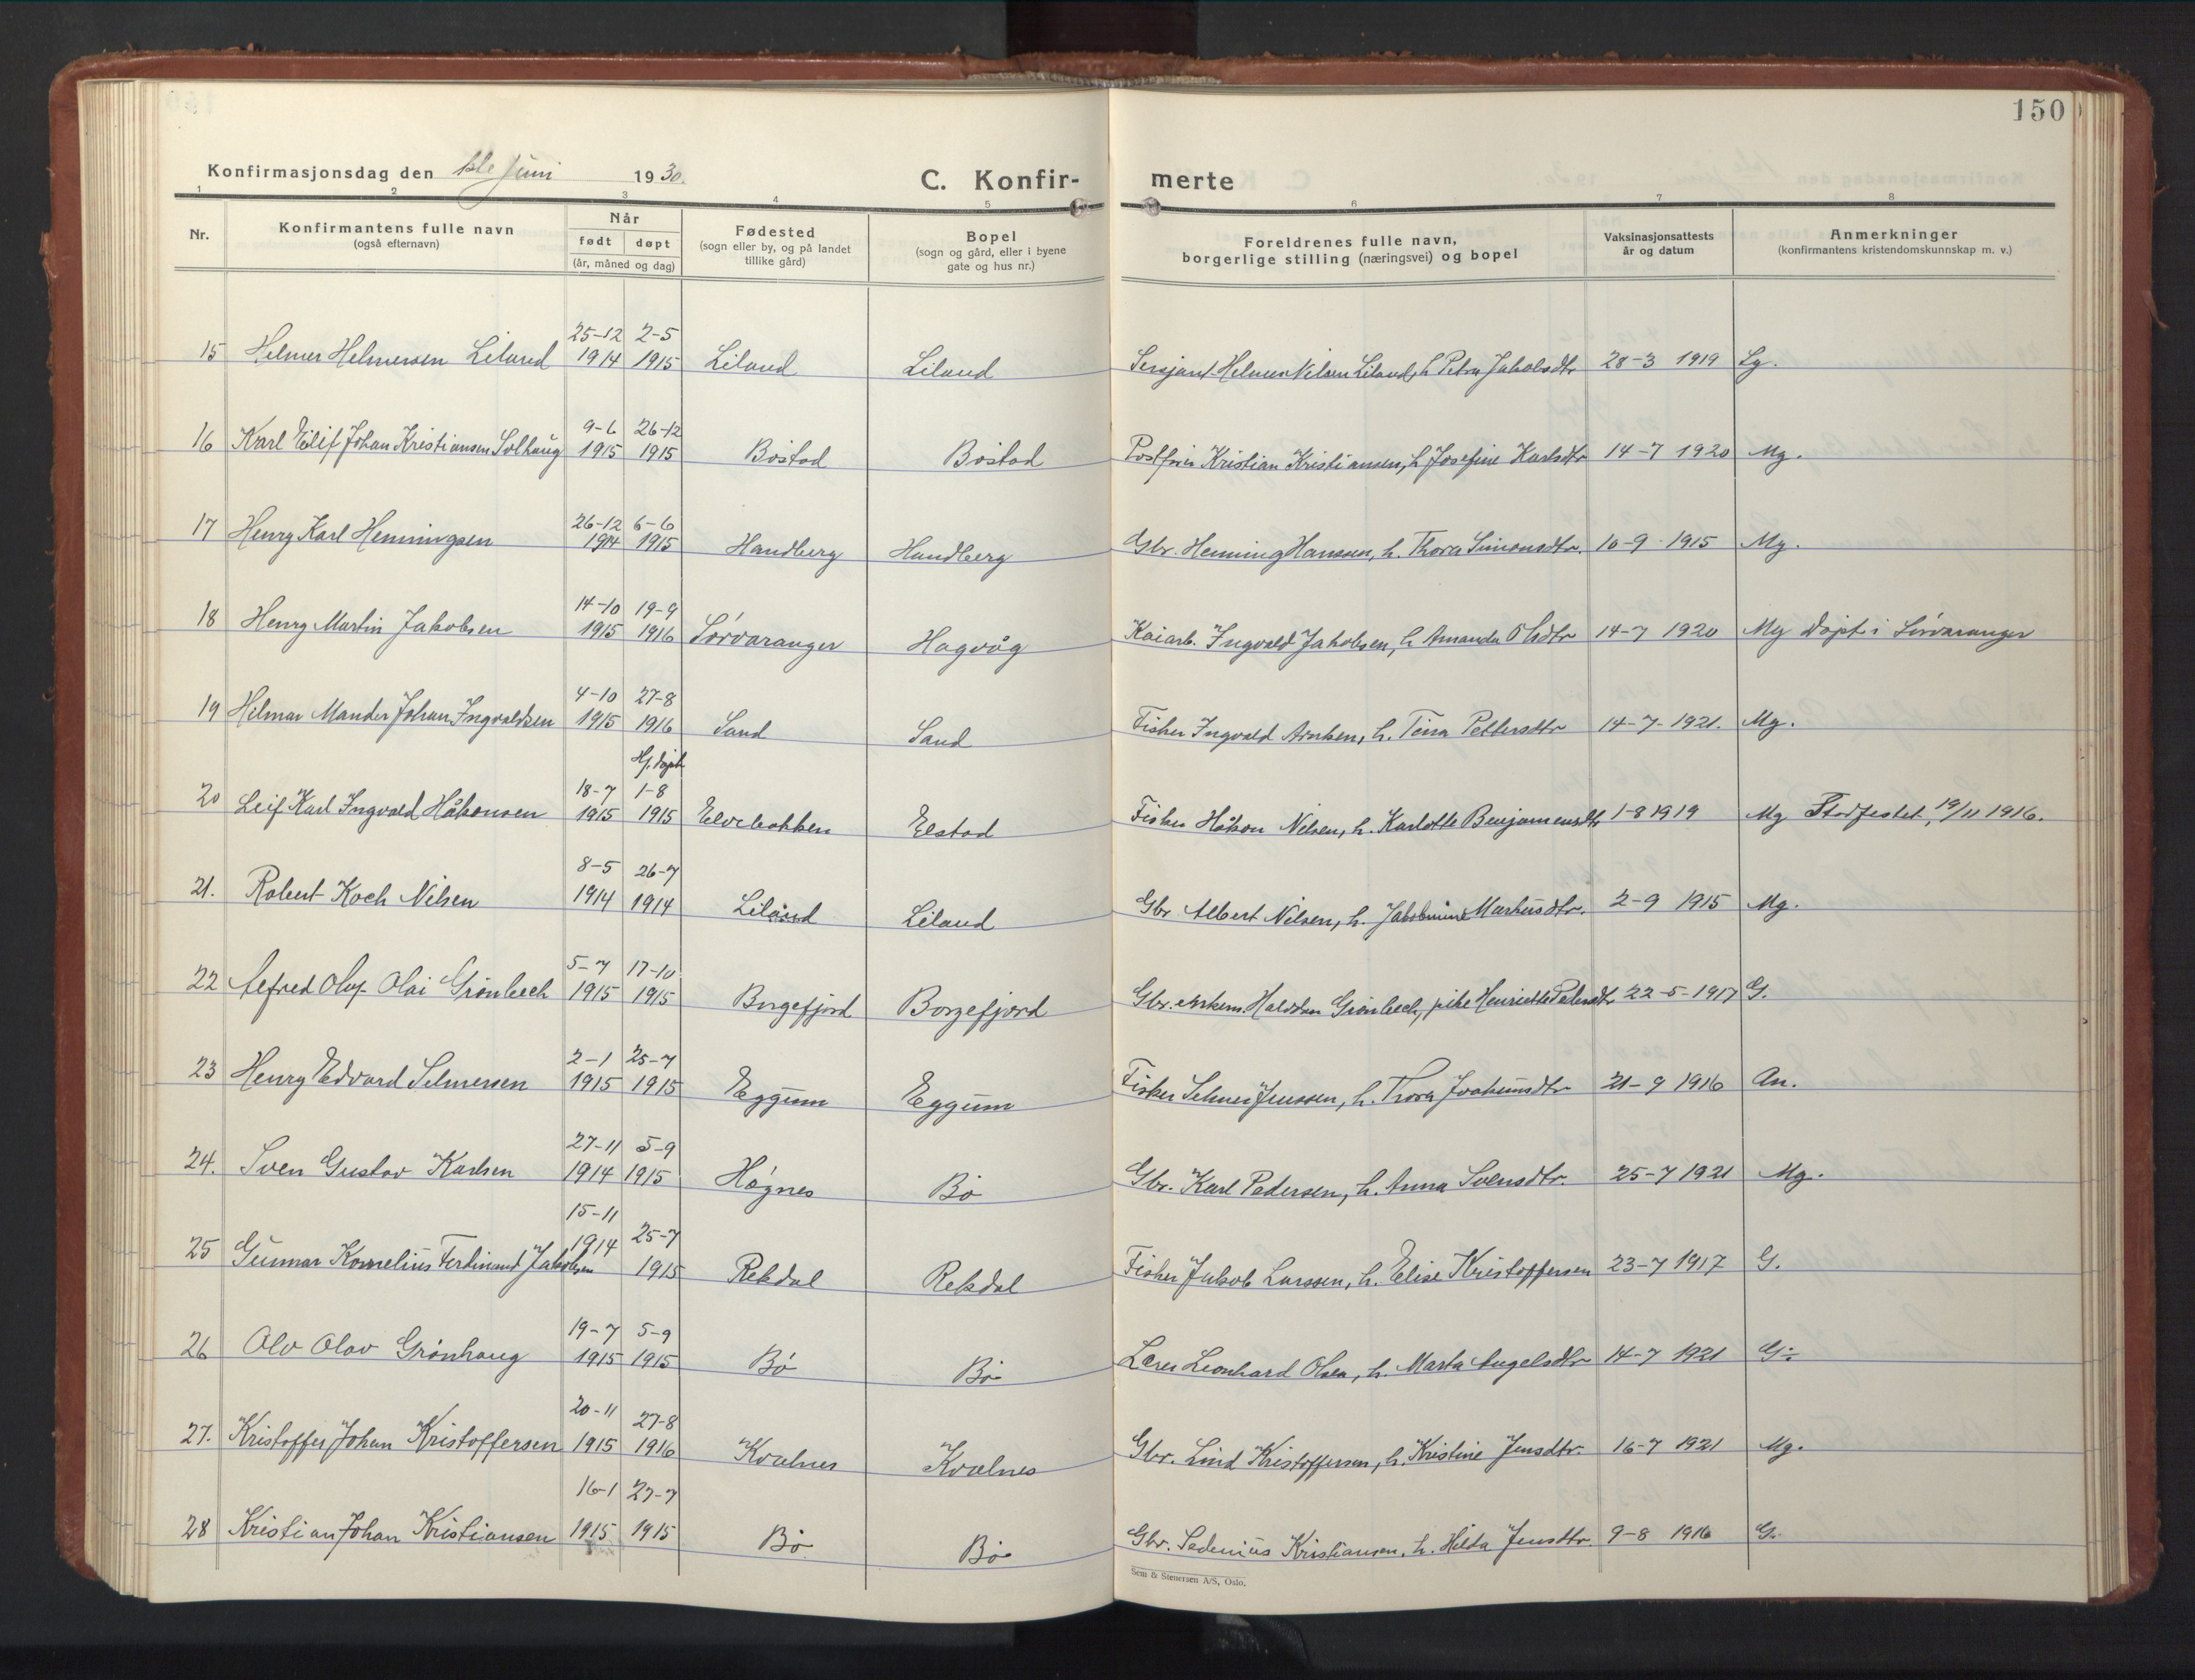 150
Konfirmasjonsdag den 1ste juni 1930.
C. Konfir- merte
1 2 3 4 5 6 7 8
Nr.
Konfirmantens fulle navn
(også efternavn)
Når
født døpt
(år, måned og dag)
Fødested
(sogn eller by, og på landet
tillike gård)
Bopel
(sogn og gård, eller i byene
gate og hus nr.)
Foreldrenes fulle navn,
borgerlige stilling (næringsvei) og bopel
Vaksinasjonsattests
år og datum
Anmerkninger
(konfirmantens kristendomskunnskap m. v.)
25-12 2-5
15 Helmer Helmersen Liland 1914 1915 Liland Liland Sersjant Helmer Nilsen Liland, h. Petra Jakobsdtr 28-3 1919 Lg.
9-6 26-12
16 Karl Eilif Johan Kristiansen Solhaug 1915 1915 Bøstad Bøstad Kristian Kristiansen, h. Josefine Karlsdtr 14-7 1920 Mg.
26-12 6-6
17 Henry Karl Henningsen 1914 1915 Handberg Handberg Gbr. Henning Hanssen, h. Thora Simonsdtr. 10-9-1915 Mg.
14-10 19-9
18 Henry Martin Jakobsen 1915 1916 Sørvaranger Hagvåg Kaiarb. Ingvald Jakobsen, h. Amanda Olsdtr 14-7 1920 Mg Døpt i Sørvaranger
4-10 27-8
19 Hilmar Mander Johan Ingvaldsen 1915 1916 Sand Sand Fisker Ingvald Arntsen, h. Tina Pettersdtr 14-7-1921. Mg.
Hj. døpt
18-7 1-8
20 Leif Karl Ingvald Håkonsen 1915 1915 Elvebakken Elstad Fisker Håkon Nilsen, h. Karlotte Benjaminsdtr 1-8 1919 Mg Stadfestet 19/11 1916.
8-5 26-7
21. Robert Koch Nilsen 1914 1914 Liland Liland Gbr Albert Nilsen, h. Jakobmine Markusdtr. 2-9 1915 Mg.
5-7 17-10
22 Alfred Oluf Olai Grönbech 1915 1915 Borgefjord Borgefjord Gbr. enkem. Halvdan Grönbech, pike Henriette Pedersdtr 22-5-1917 G.
2-1 25-7
23 Henry Edvard Selmersen 1915 1915 Eggum Eggum Fisker Selmer Jenssen, h. Thora Joakimsdtr 21-9 1916 An.
27-11 5-9
24. Sven Gustav Karlsen 1914 1915 Høgnes Bø Gbr. Karl Pedersen, h. Anna Svensdtr. 25-7 1921 Mg.
15-11 25-7
25 Gunnar Kornelius Ferdinand Jakobsen 1914 1915 Rekdal Rekdal Fisker Jakob Larssen, h. Elise Kristoffersen 23-7 1917 G.
19-7 5-9
26 Olv Olav Grønhaug 1915 1915 Bø Bø Lærer Leonhard Olsen, h. Marta Angelsdtr 14-7 1921 G÷
20-11 27-8
27. Kristoffer Johan Kristoffersen 1915 1916 Kvalnes Kvalnes Gbr. Lind Kristoffersen, h. Kristine Jensdtr. 16-7 1921 Mg.
16-1 27-7
28 Kristian Johan Kristiansen 1915 1915 Bø Bø Gbr. Sedenius Kristiansen, h. Hilda Jensdtr. 9-8 1916 G.
Sem & Stenersen A/S, Oslo.